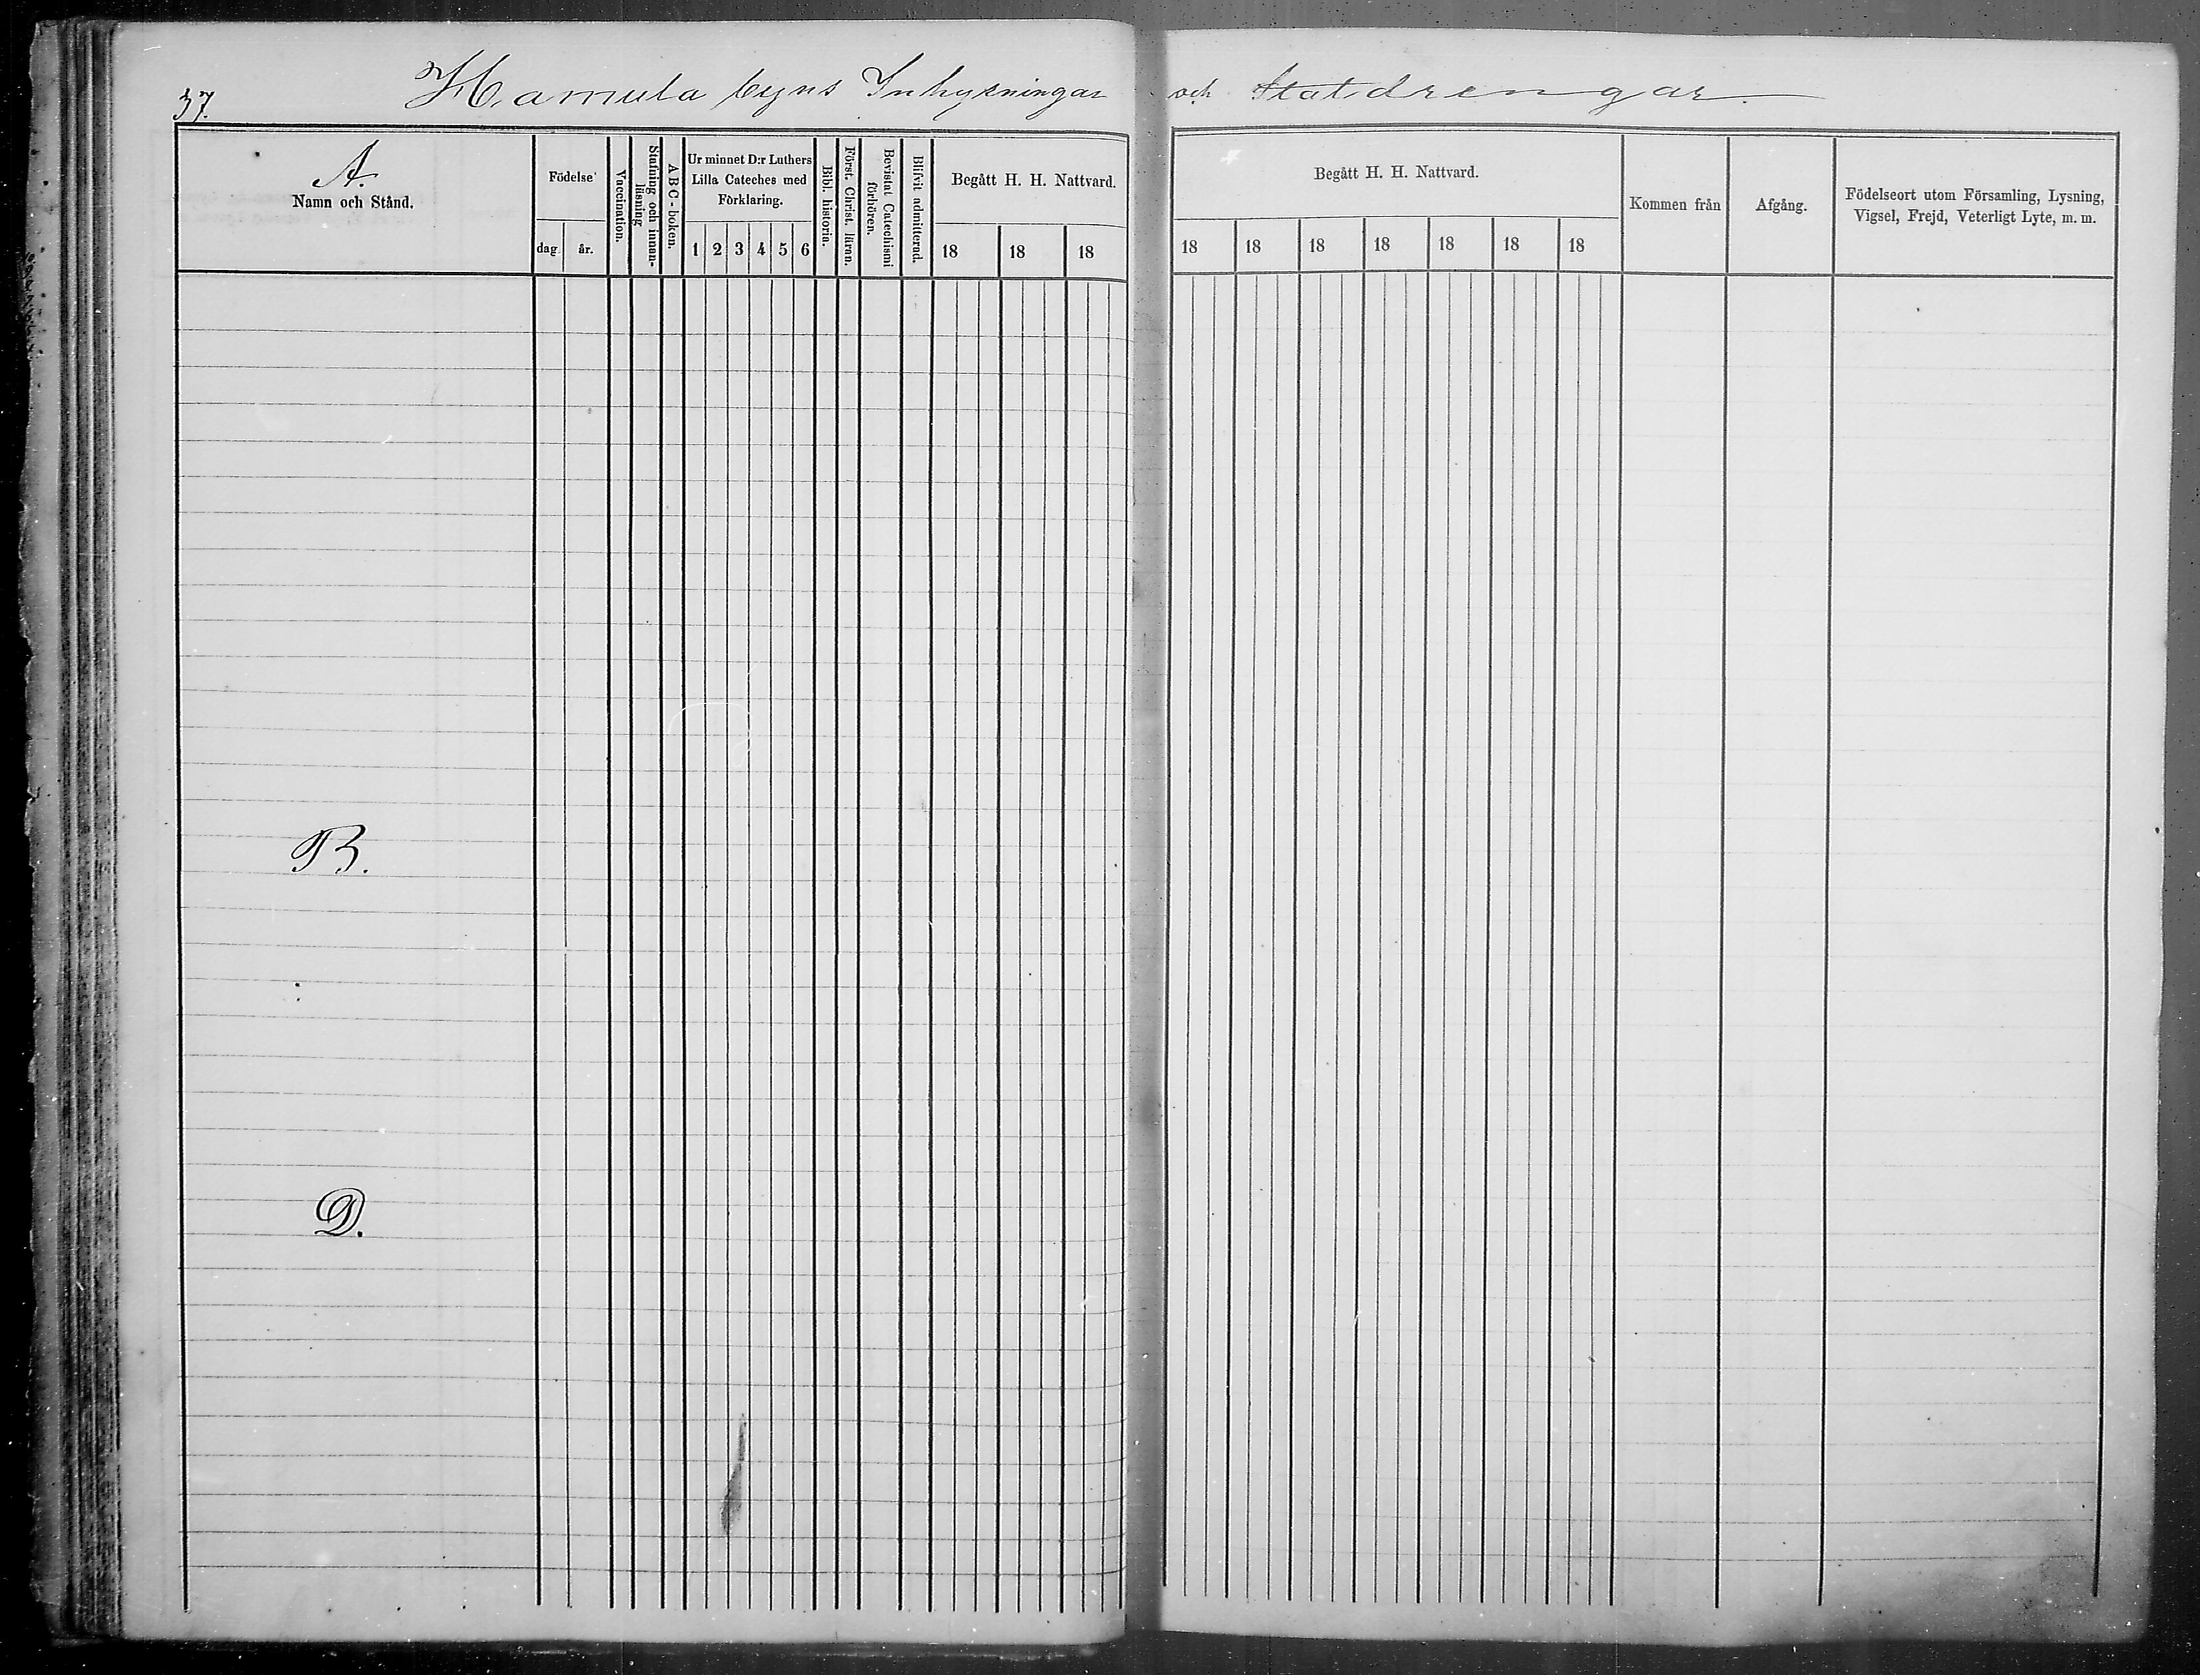 37.
Hamula byns Inhysningar och Statdrengar.
A.
Namn och Stånd.
Födelse
dag år.
Vaccination.
Stafning och innan-
läsning
A B C - boken.
Ur minnet D:r Luthers
Lilla Cateches med
Förklaring.
1 2 3 4 5 6
Bibl. historia.
Först. Christ. läran.
Bevistat Catechismi
förhören.
Blifvit admitterad.
Begått H. H. Nattvard.
18 18 18
Begått H. H. Nattvard.
18 18 18 18 18 18 18
Kommen från
Afgång.
Födelseort utom Församling, Lysning,
Vigsel, Frejd, Veterligt Lyte, m. m.
B.
D.